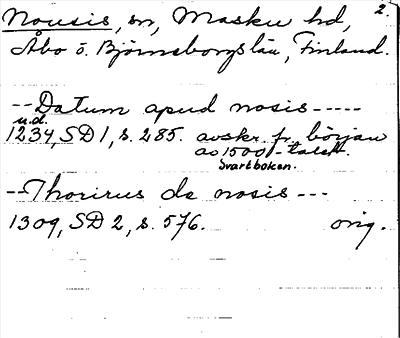 2.
Nousis, sn, Masku hd,
Åbo ö. Björneborgs län, Finland.
--Datum apud nosis-----
u.d.
1234, SD 1, s. 285. avskr. fr. början
av 1500-talet.
Svartboken.
--Thorirus de nosis---
1309, SD 2, s. 576. orig.